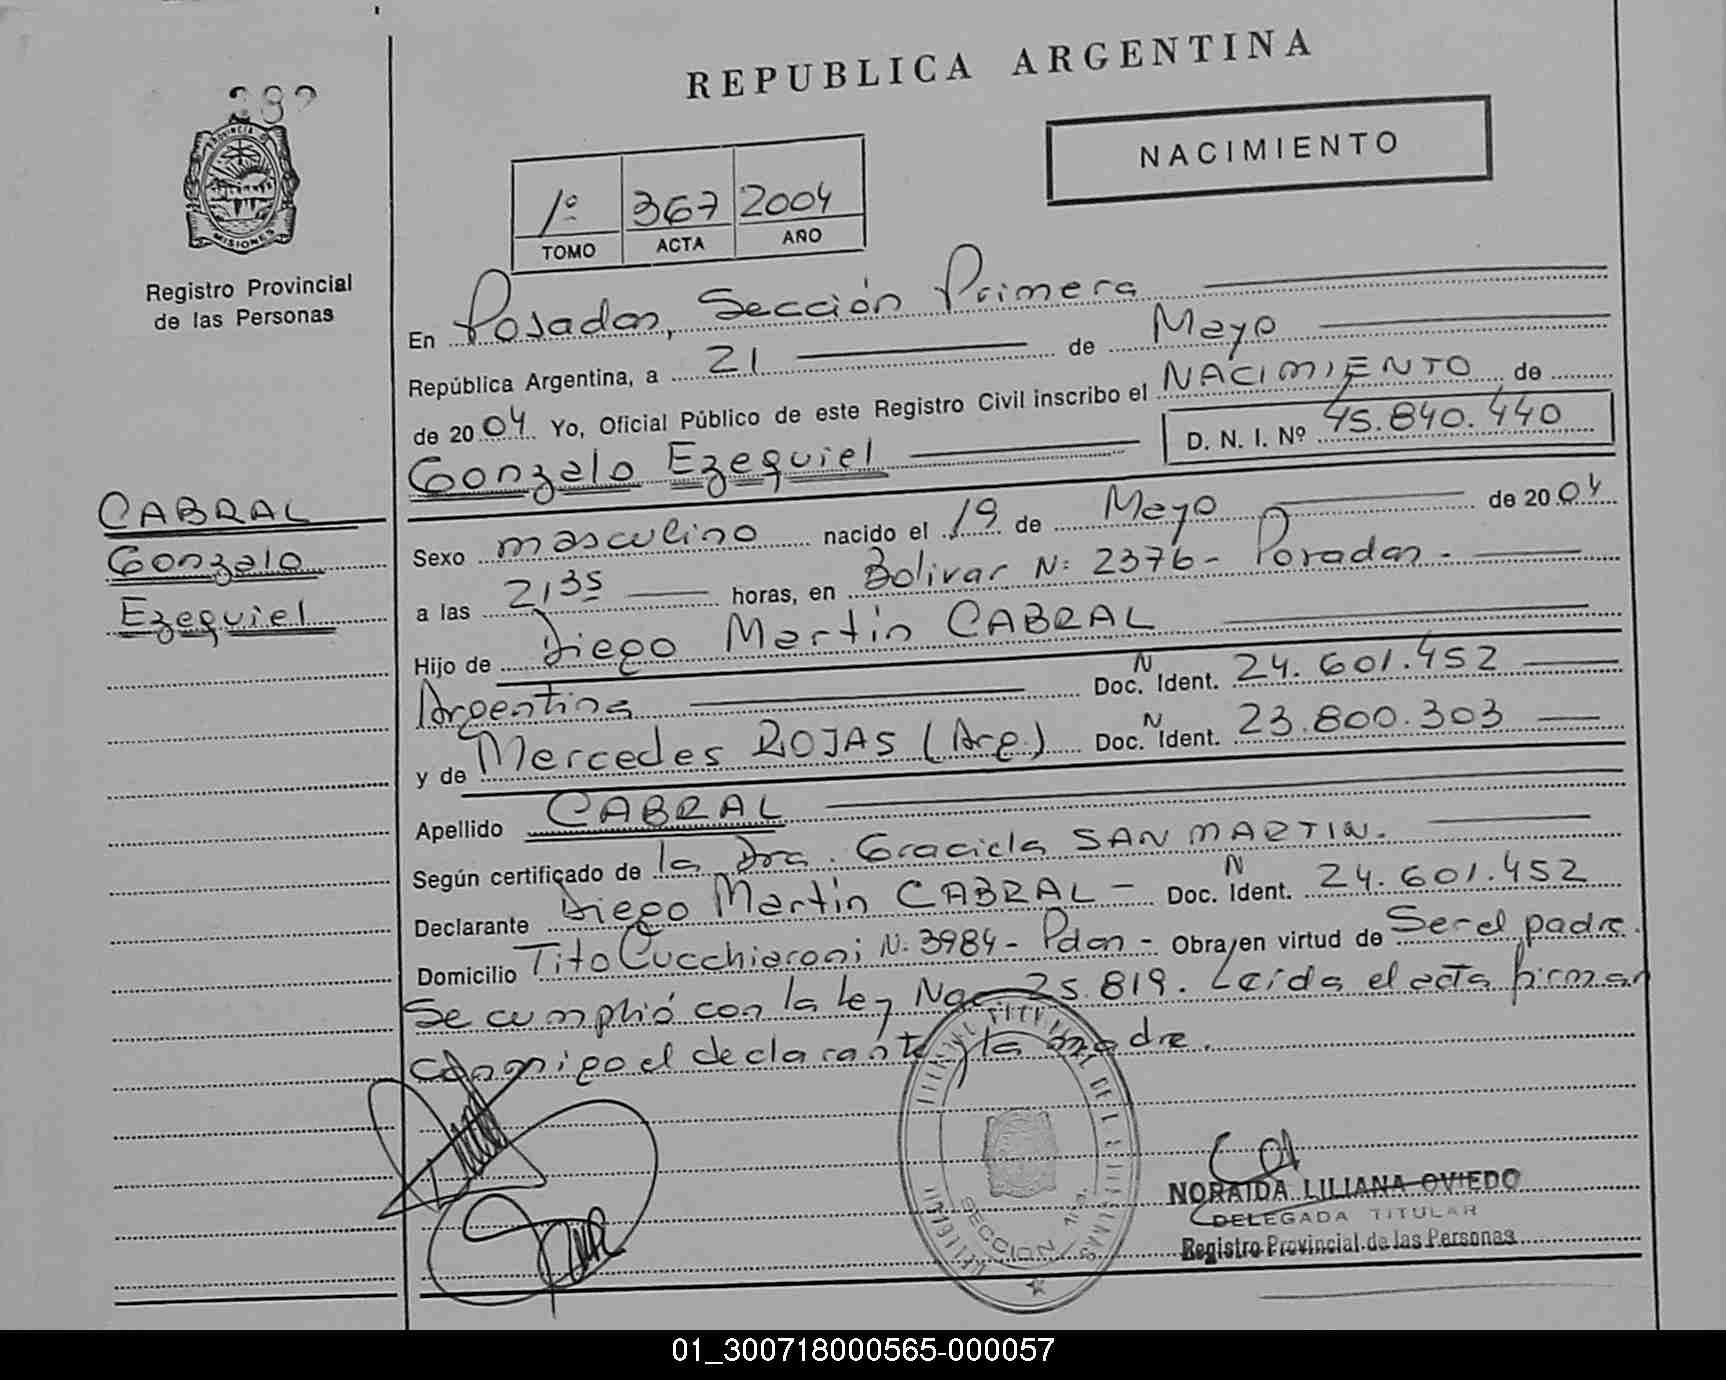 REPUBLICA ARGENTINA
282
PROVINCIA DE
MISIONES
Registro Provincial
de las Personas
NACIMIENTO
1º 367 2004
TOMO ACTA AÑO
En Posadas, Sección Primera
República Argentina, a 21 de Mayo
de 2004 Yo, Oficial Público de este Registro Civil inscribo el NACIMIENTO de
D. N. I. Nº 45.840.440
Gonzalo Ezequiel
CABRAL
Gonzalo
Ezequiel
Sexo masculino nacido el 19 de Mayo de 2004
a las 21,35 horas, en Bolivar N: 2376 - Posadas -
Hijo de Diego Martin CABRAL
Argentina Doc. N Ident. 24.601.452
y de Mercedes ROJAS (Arg.) Doc. N Ident. 23.800.303
Apellido CABRAL
Según certificado de la Dra. Graciela SAN MARTIN.
Declarante Diego Martin CABRAL - Doc. N Ident. 24.601.452
Domicilio Tito Cucchiaroni N: 3984 - Pdas - Obra/en virtud de Ser el padre.
Se cumplió con la ley Nac. 25.819. Leída el acta firman
conmigo el declarante y la madre.
SECCION 1ra.
NORAIDA LILIANA OVIEDO
DELEGADA TITULAR
Registro Provincial de las Personas
01_300718000565-000057